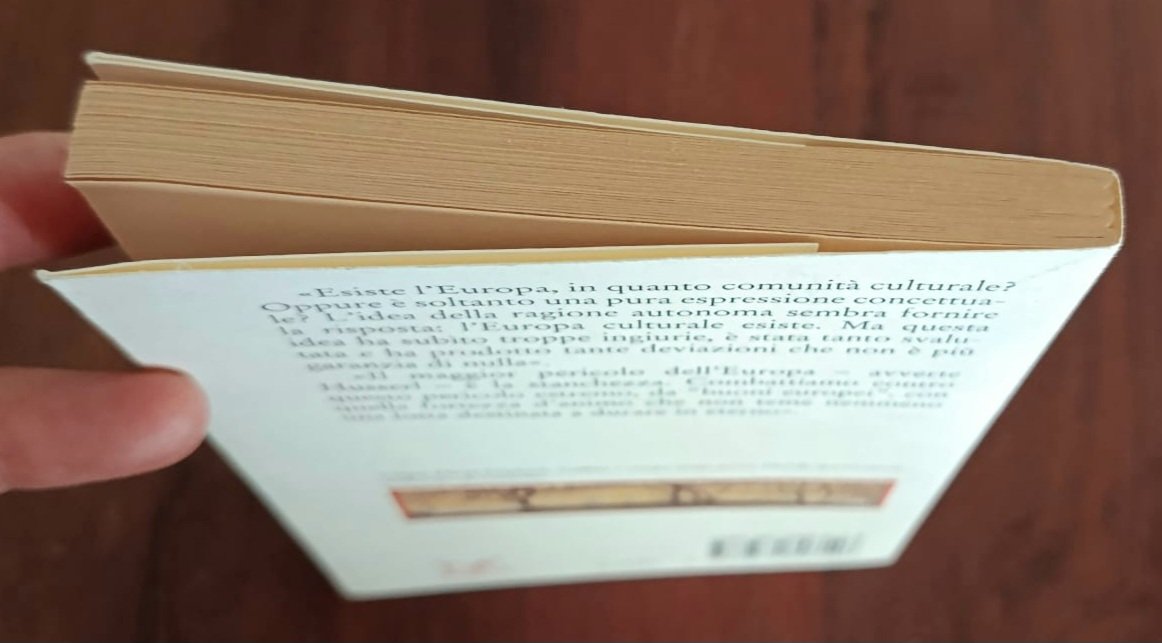 «Esiste l'Europa, in quanto comunità culturale?
Oppure è soltanto una pura espressione concettua-
le? L'idea della ragione autonoma sembra fornire
la risposta: l'Europa culturale esiste. Ma questa
idea ha subìto troppe ingiurie, è stata tanto svalu-
tata e ha prodotto tante deviazioni che non è più
garanzia di nulla».
«Il maggior pericolo dell'Europa – avverte
Husserl – è la stanchezza. Combattiamo contro
questo pericolo estremo, da "buoni europei", con
quella fortezza d'animo che non teme nemmeno
una lotta destinata a durare in eterno».